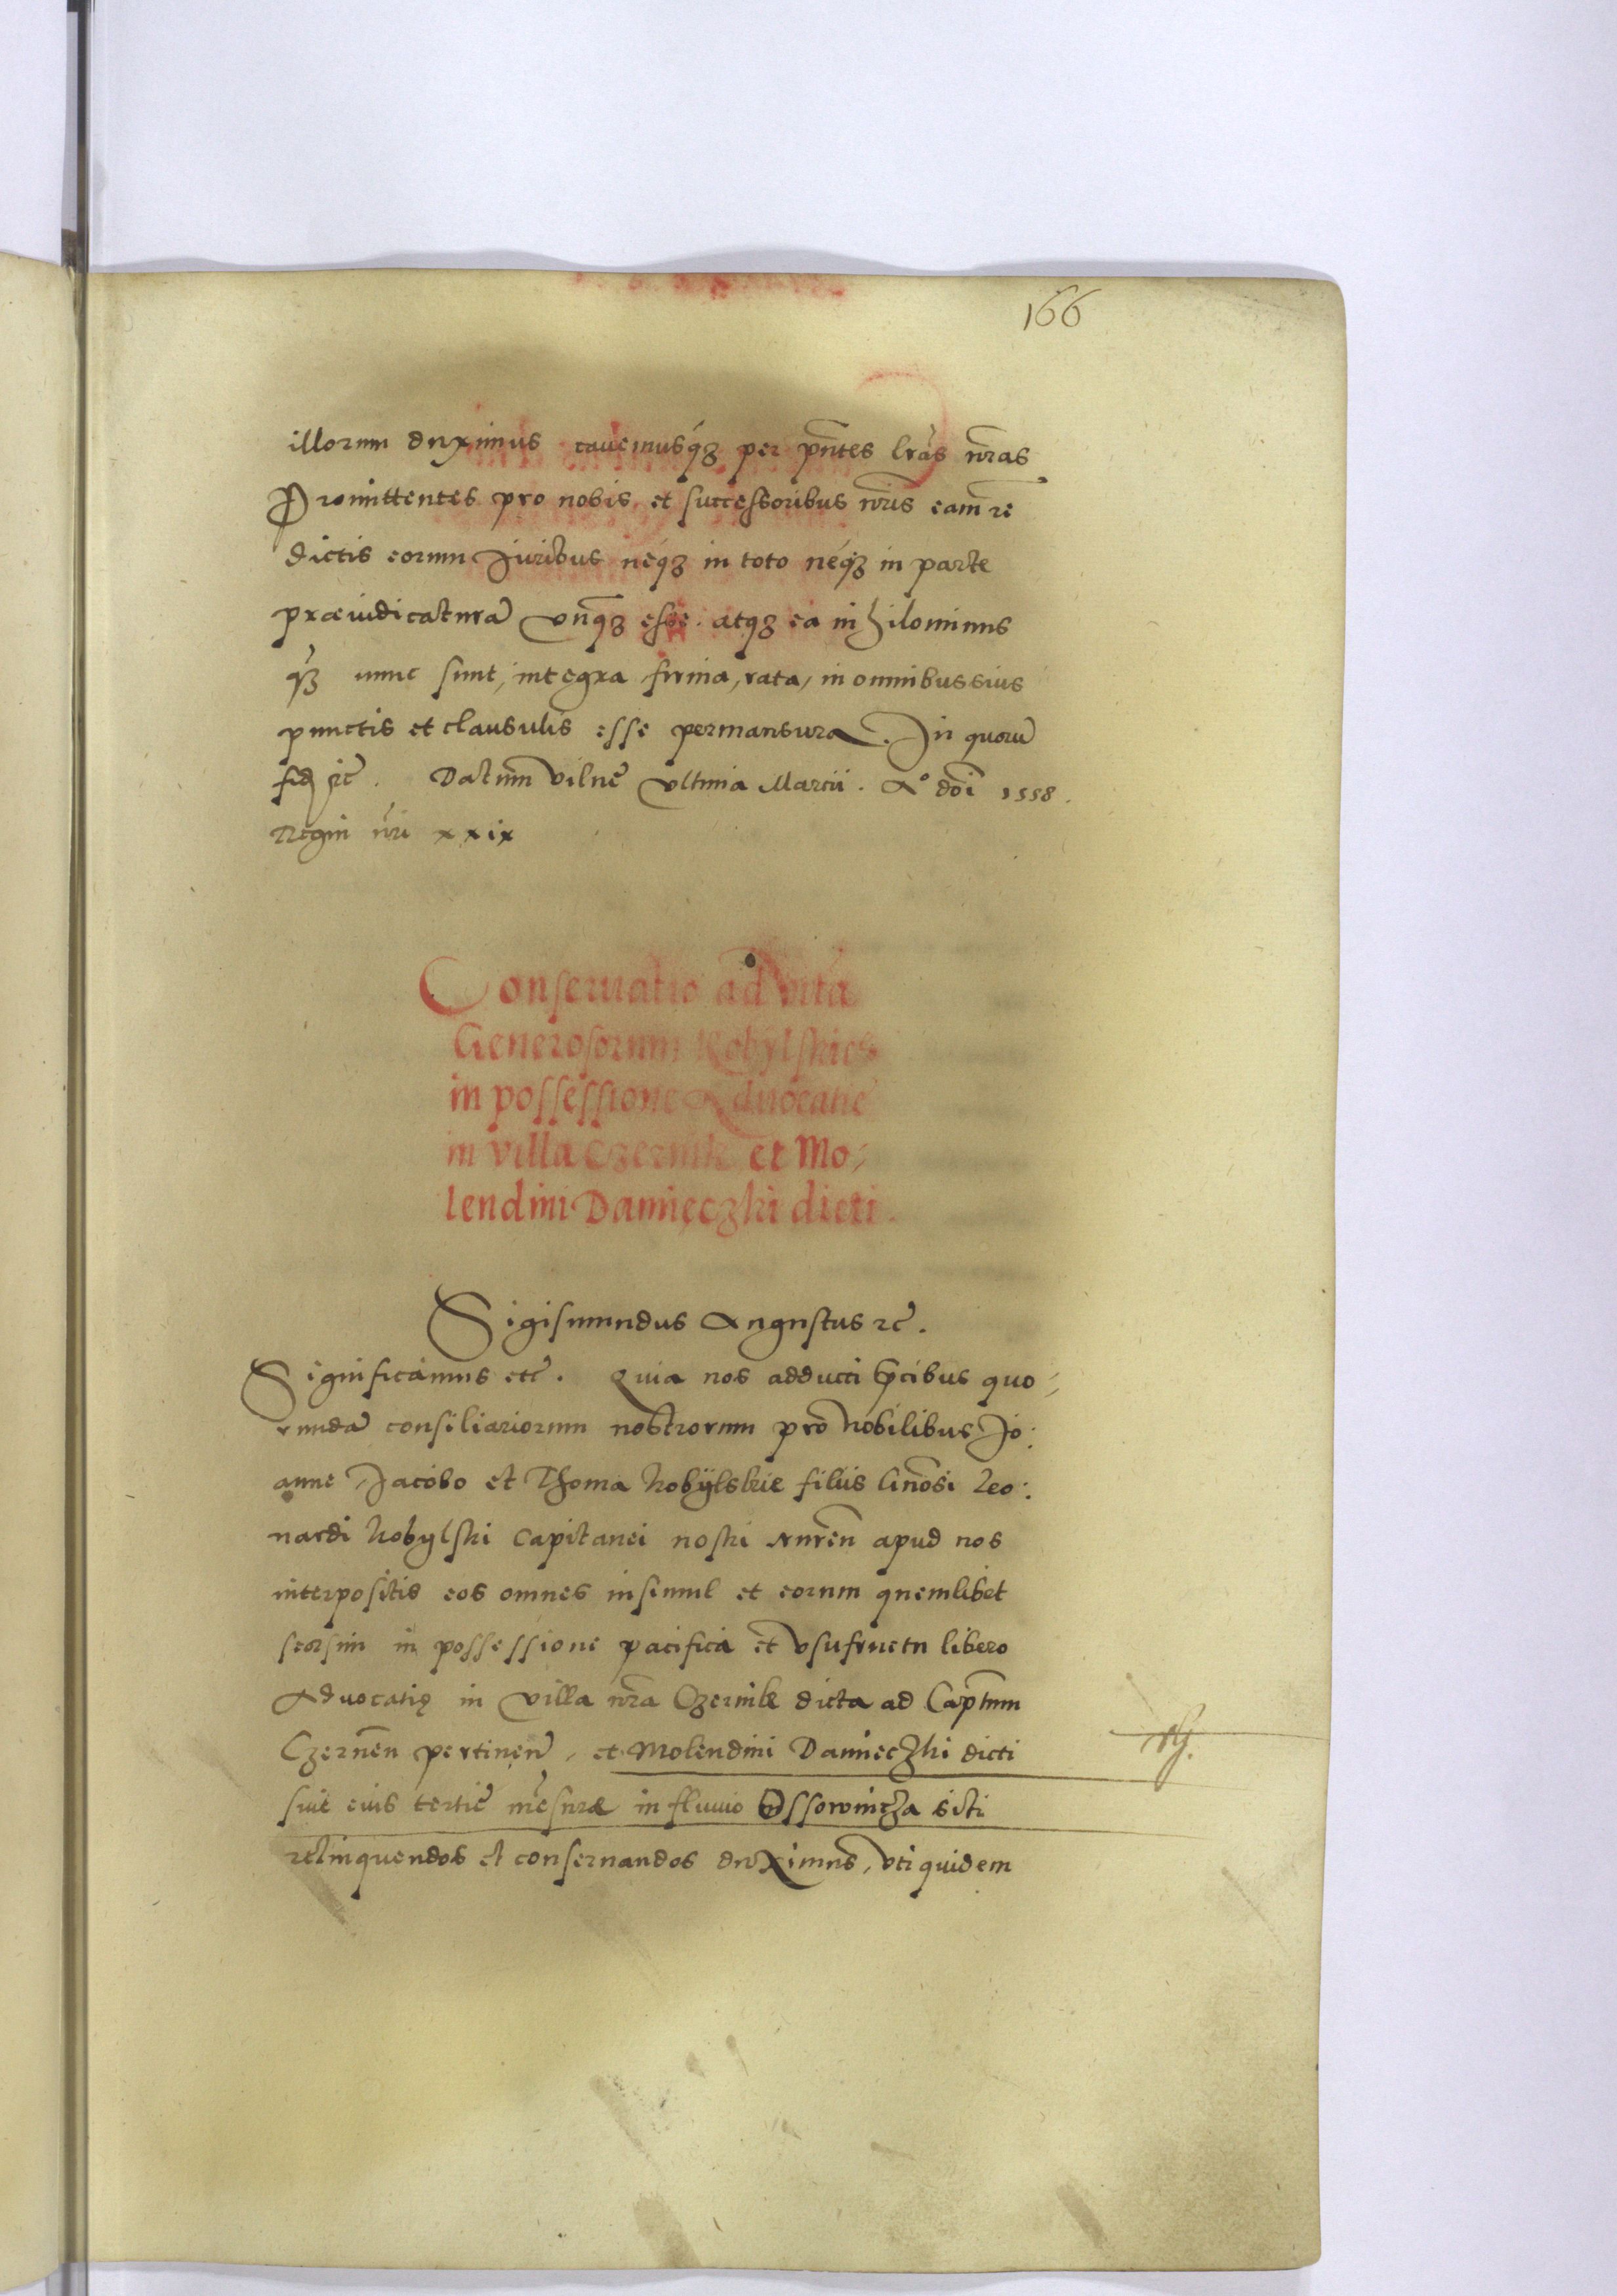 166
illorum duximus cavemusq́ꝫ per pn̄tes lrās nr̄as
Promittentes pro nobis, et successoribus nr̄is eam re
dictis eorum Juribus neq́ꝫ in toto néqꝫ in parte
præiudicaturā vnq̄ꝫ esse. atqꝫ ea nihilominus
nunc sunt, integra firma, rata, in omnibus suis
punctis et clausulis esse permansura. In quorū
fidē rc̄. Datum vilnē vltima Martii. A° doī 1558.
Regni nr̄i xxix
Conseruatio ad vitā
Generosorum Kobylskich
in possessione Aduocatiē
in villa Czernik et Mo⸗
lendini Damięczki dicti.
Sigismundus Augustus rc̄.
Significamus etc̄. Quia nos adducti p̄cibus quo⸗
rundā consiliariorum nostrorum pro Nobilibus Jo:
anne Jacobo et Thoma Kobÿlskie filiis Gn̄osi Leo:
nardi Kobylski Capitanei nostri apud nos
interpositis eos omnes insimul et eorum quemlibet
seorsim in possessione pacifica et vsufructu libero
Aduocatię in villa nr̄a Czernik dicta ad Capt̄num
Czernēn pertineñ, et Molendini Damieczki dicti
siue eius tertiē mēsuræ in fluuio Ossownicza siti
relinquendos et conseruandos duximus, vti quidem